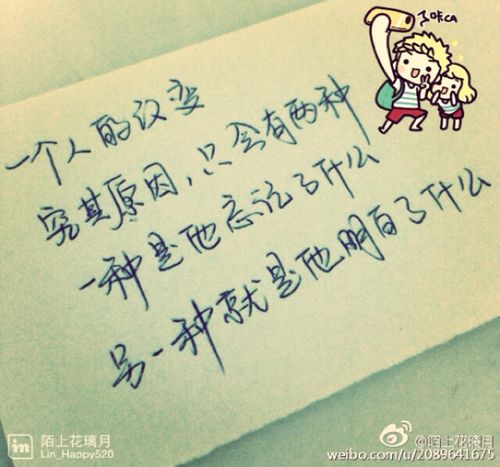 咔ca
一个人的改变
究其原因，只会有两种
一种是他忘记了什么
另一种就是他明白了什么
in 陌上花璃月
Lin_Happy520
@陌上花璃月
weibo.com/u/2089641675